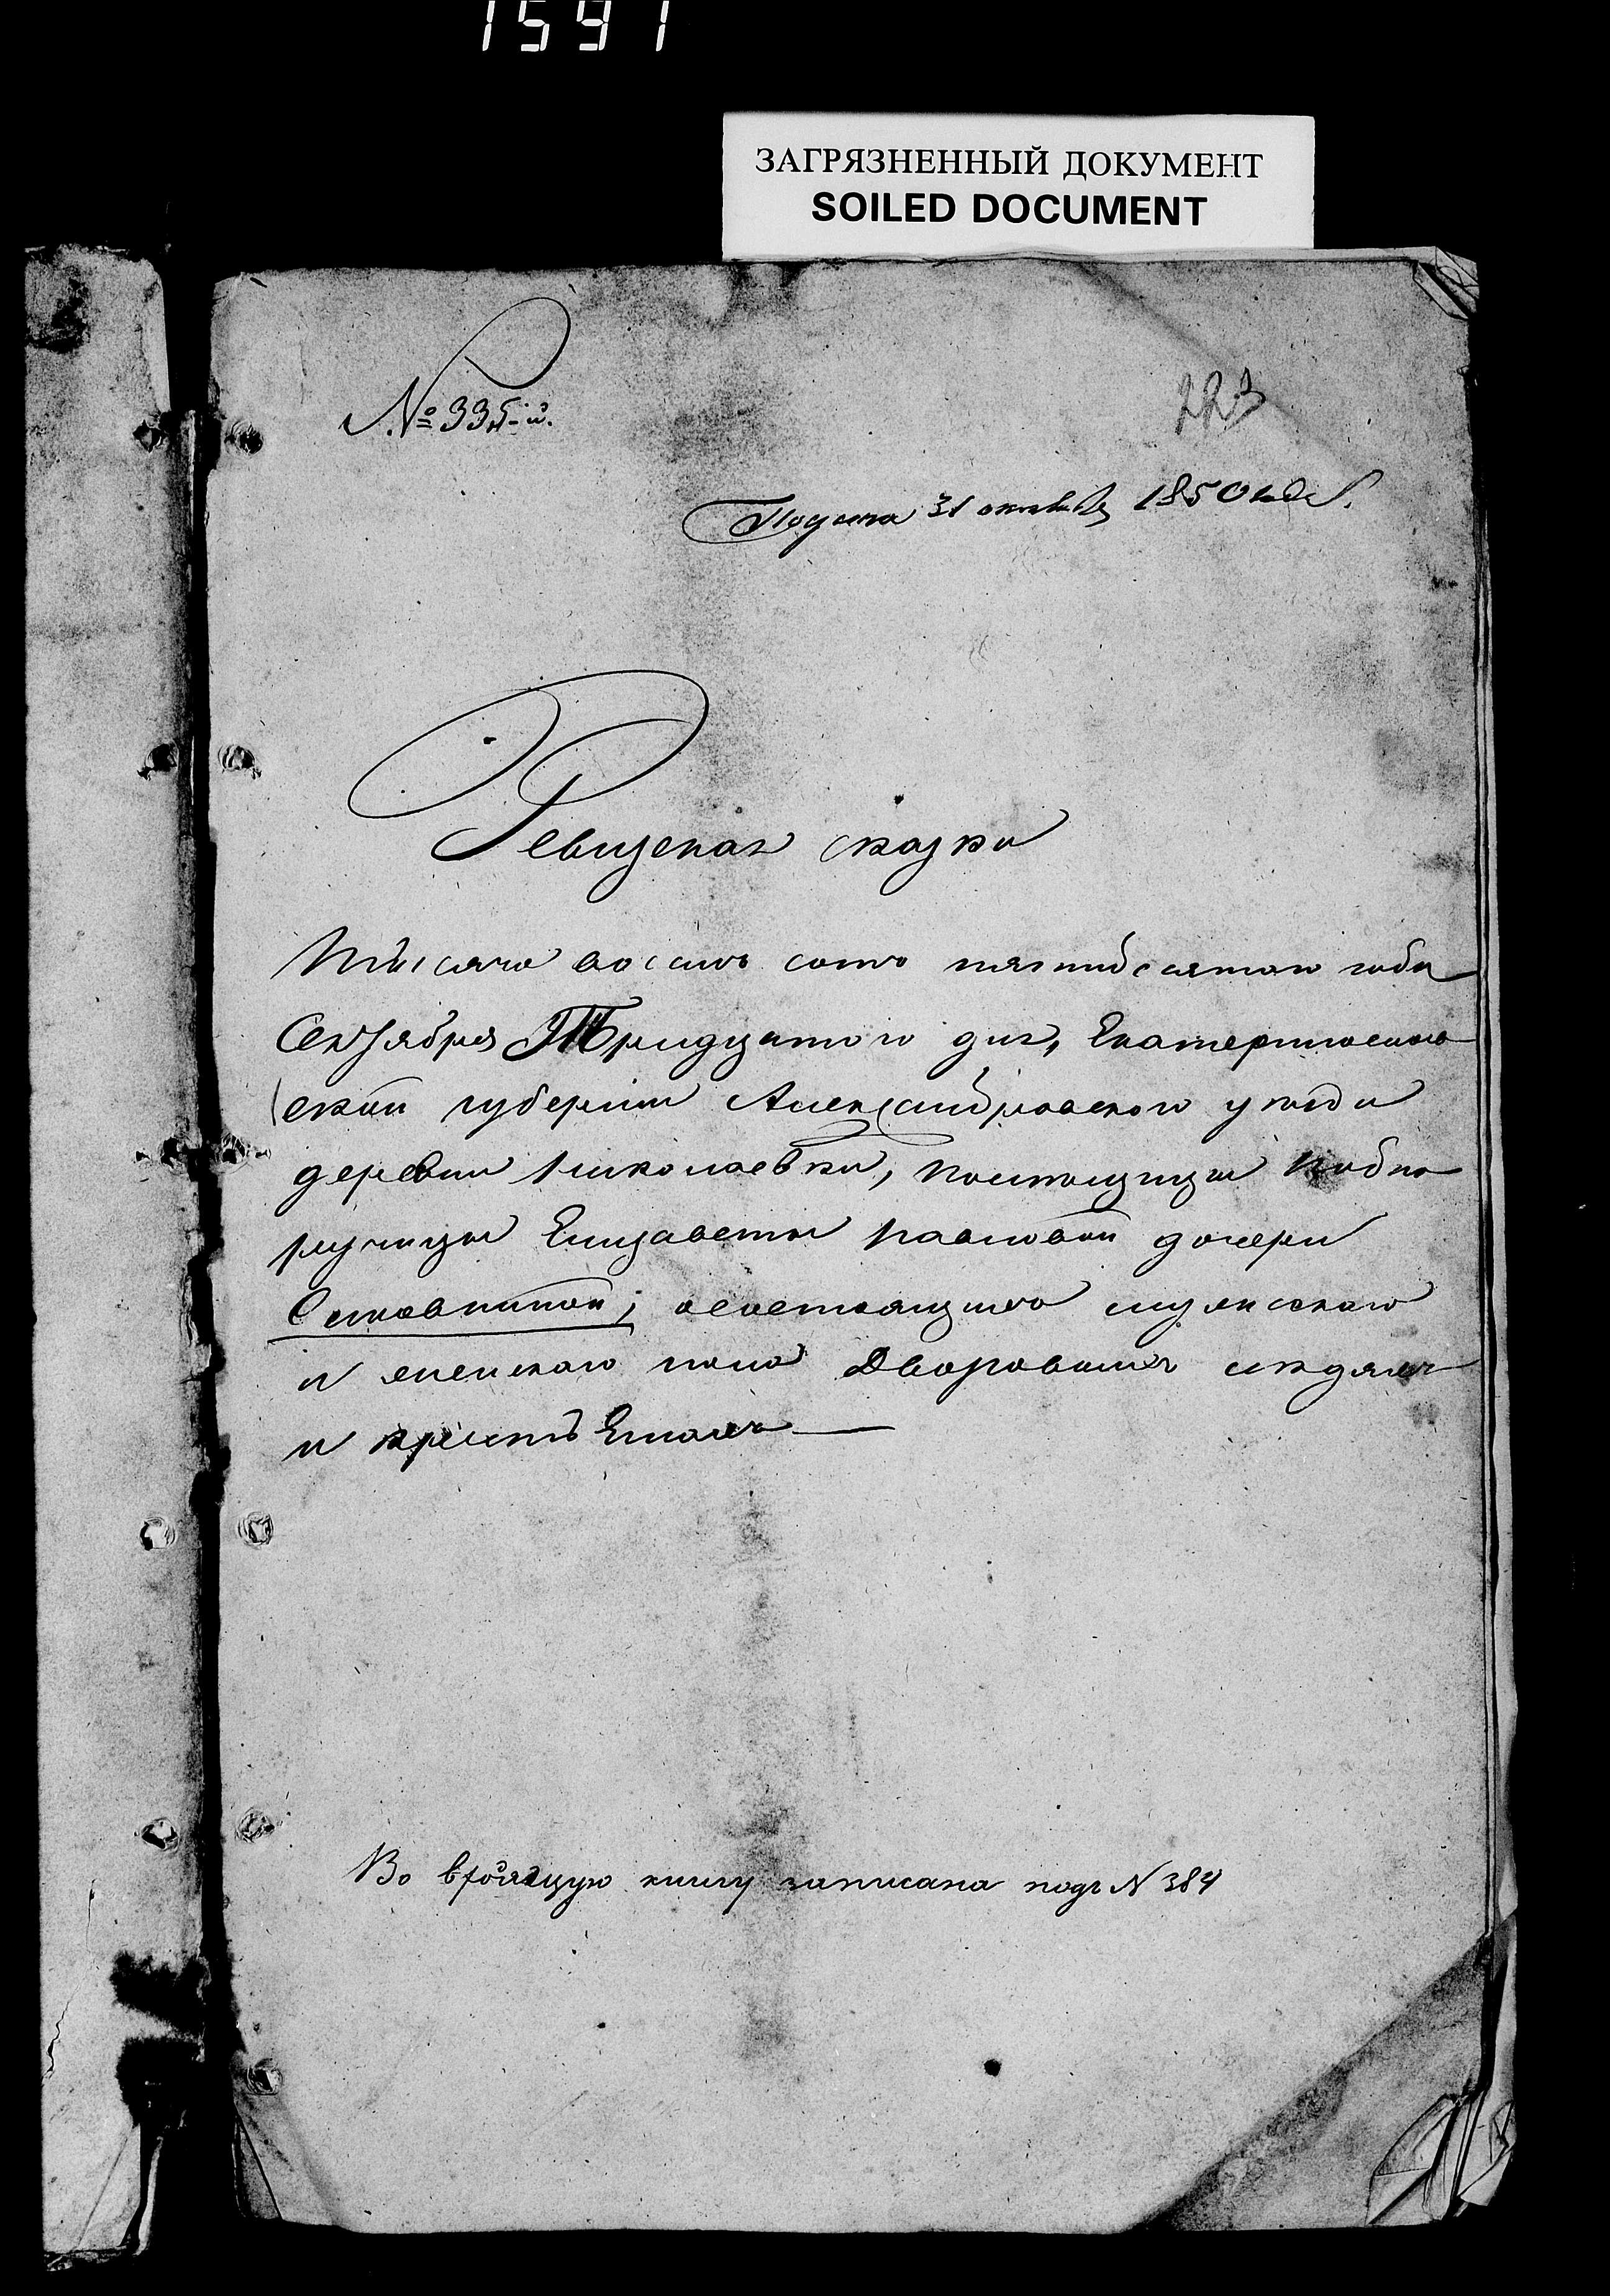 1591
ЗАГРЯЗНЕННЫЙ ДОКУМЕНТ
SOILED DOCUMENT
№ 335-й.
223
Подана 31 октября 1850 года.
Ревизская сказка
Тысяча восемь сотъ пятидесятаго года
Сентября Тридцатого дня, Екатеринослав
ской губернии Александровского уезда
деревни Николаевки, помещицы Подпо
ручицы Елизаветы Павловой дочери
о состоящихъ мужескаго
и женскаго пола Дворовыхъ людяхъ
и крестьянахъ
Во входящую книгу записана подъ N 384